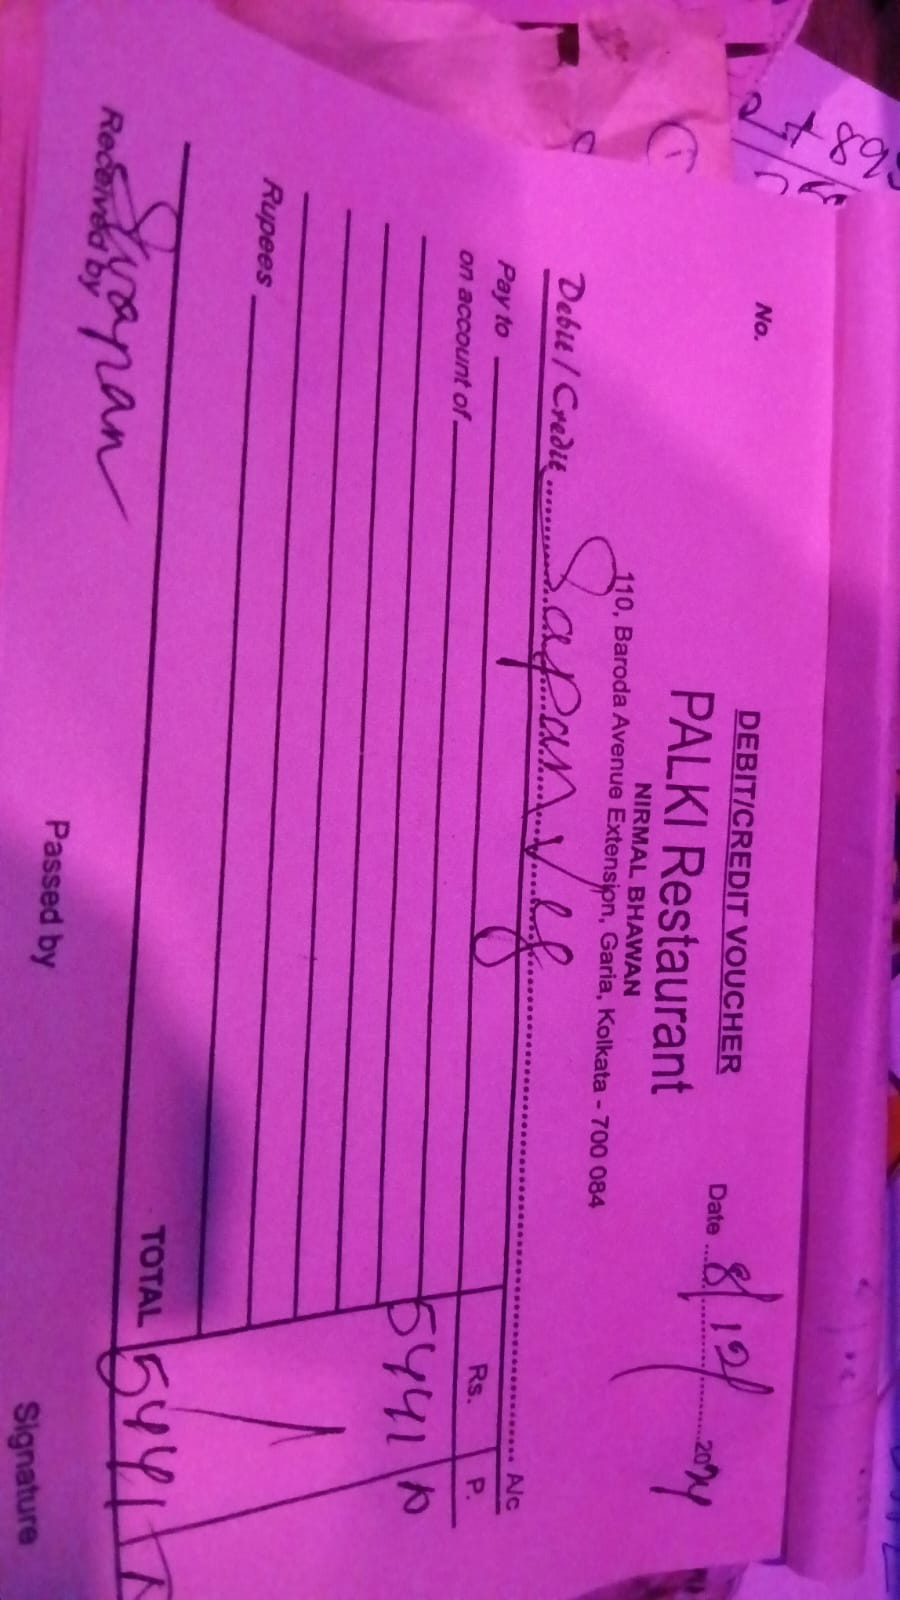 No.
DEBIT/CREDIT VOUCHER
PALKI Restaurant
NIRMAL BHAWAN
110, Baroda Avenue Extension, Garia, Kolkata - 700 084
Date 8/12/2024
Debit / Credit Sapan Veg A/c
Pay to Rs. P.
on account of
5441
Rupees
TOTAL 5441
Swapan
Received by Passed by Signature